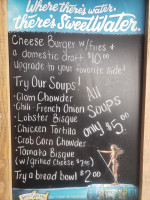 Where there's water,
there's SweetWater.
Cheese Burger w/fries &
a domestic draft $10
Upgrade to your favorite side!
Try Our Soups!
- Clam Chowder
- Chili - French Onion
- Lobster Bisque
- Chicken Tortilla
- Crab Corn Chowder
- Tomato Bisque
(w/grilled cheese $7
All
Soups
only $5.00
Try a bread bowl $2.00